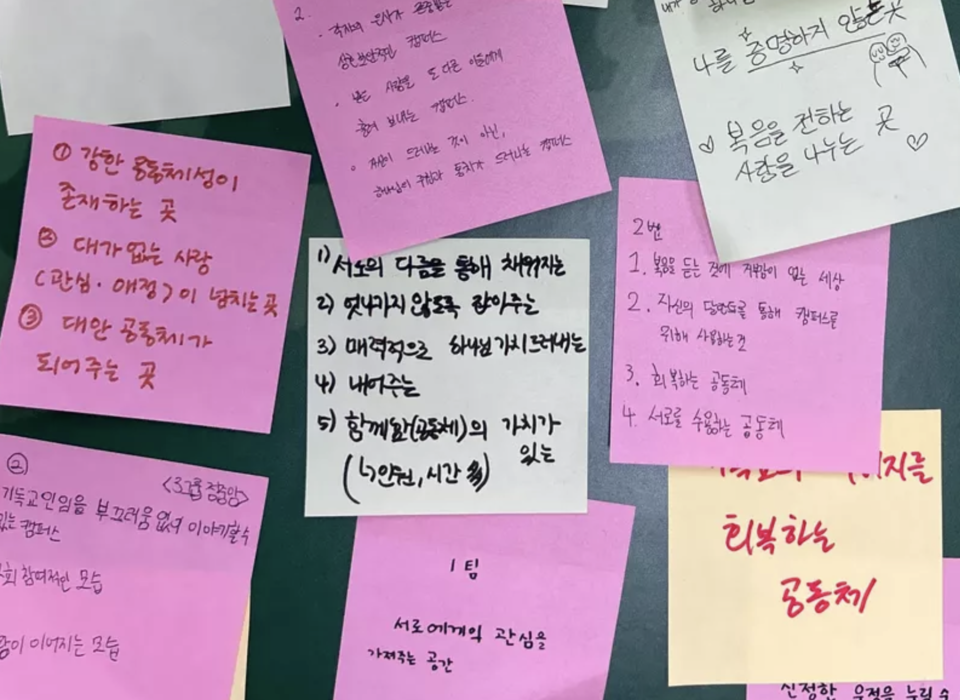 2.
각자의 은사가 존중받는
상호보완적인 캠퍼스
· 받은 사랑을 또 다른 이들에게
흘려 보내는 캠퍼스.
드러내는 것이 아닌,
드러나는 캠퍼스
나를 증명하지 않는 곳
♡ 복음을 전하는 곳
사랑을 나누는 ♡
① 강한 공동체성이
존재하는 곳
② 대가 없는 사랑
(관심·애정)이 넘치는 곳
③ 대안 공동체가
되어주는 곳
1) 서로의 다름을 통해 채워지는
2) 엇나가지 않도록 잡아주는
3) 매력적으로 하나님 가치 드러내는
4) 내어주는
5) 함께함(공동체)의 가치가
있는
(↳안권, 시간)
2번
1. 복음을 듣는 것에 거부감이 없는 세상
2. 자신의 달란트를 통해 캠퍼스를
위해 사용하는 것
3. 회복하는 공동체
4. 서로를 수용하는 공동체
②
<3그룹 정준암>
기독교인임을 부끄러움 없이 이야기할 수
있는 캠퍼스
사회 참여적인 모습
이어지는 모습
1팀
서로에게의 관심을
가져주는 공간
회복하는
공동체
진정한 우정을 누릴 수